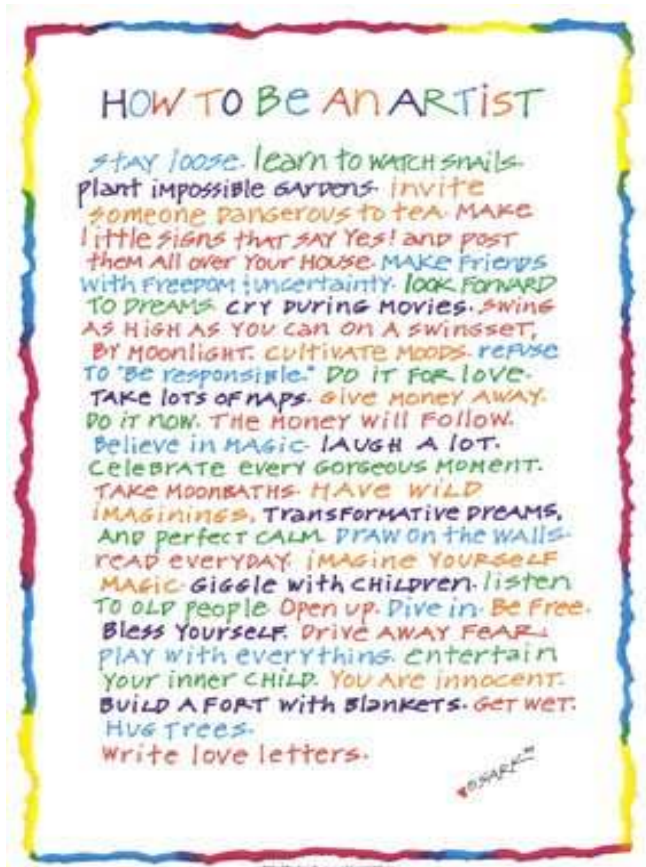 HOW TO BE AN ARTIST
STAY loose. learn to WATCH snails.
plant impossible GARDENS. invite
someone Dangerous to teA. MAKE
little signs that SAY Yes! and post
them All over Your House. MAKE Friends
with Freedom & uncertainty. look Forward
TO DreAMS. cry During Movies. Swing
As High As You can on A swingset,
By Moonlight. Cultivate MOODS. refuse
TO "Be responsible." Do it For love.
TAKE lots of naps. Give Money AWAY.
Do it now. The Money Will Follow.
Believe in MAGic. lAUGH A lot.
Celebrate every Gorgeous Moment.
TAKE MOONBATHS. HAVe WILD
iMAGinings, TransForMative DreAMs,
And perfect CALM. DrAW on the WALLS.
reAD everyDAY. iMAGine YourselF
MAGic. GiGGle with CHilDren. listen
TO OLD people. Open up. Dive in. Be Free.
Bless YourselF. Drive AWAY FeAr.
plAY with everything. entertain
Your inner CHilD. You Are innocent.
BuilD A Fort with BlanKets. Get wet.
HuG Trees.
Write love letters.
SARK